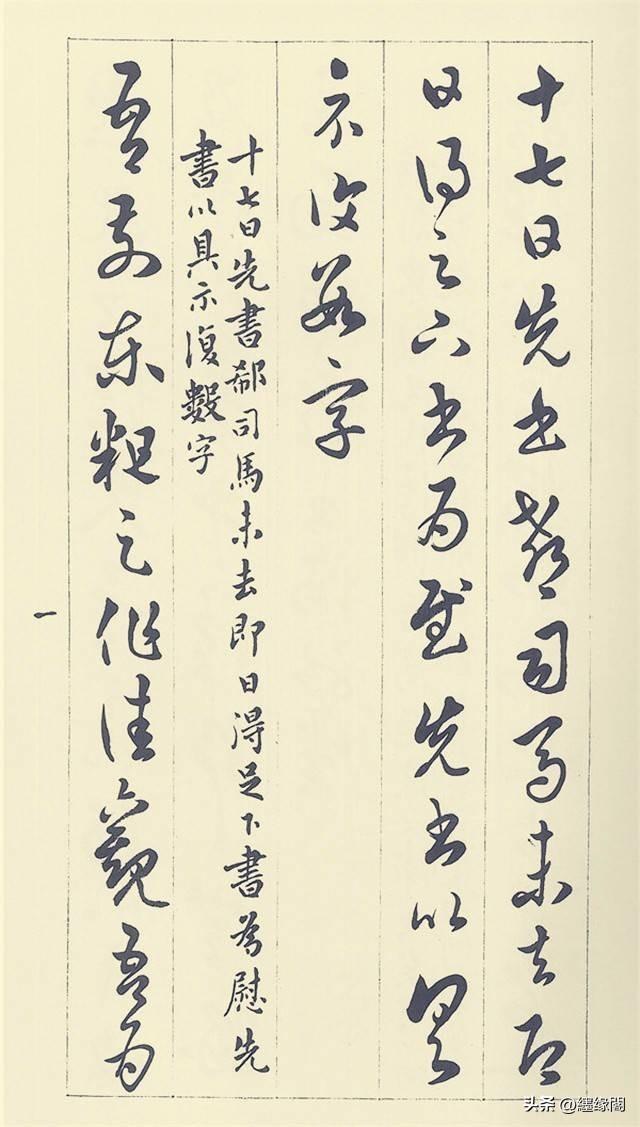 十七日先書郗司馬未去即
日得足下書為慰先書以具
示復數字
十七日先書郗司馬未去即日得足下書為慰先
書以具示復數字
吾前東粗足作佳觀吾為
一
头条 @缘閣